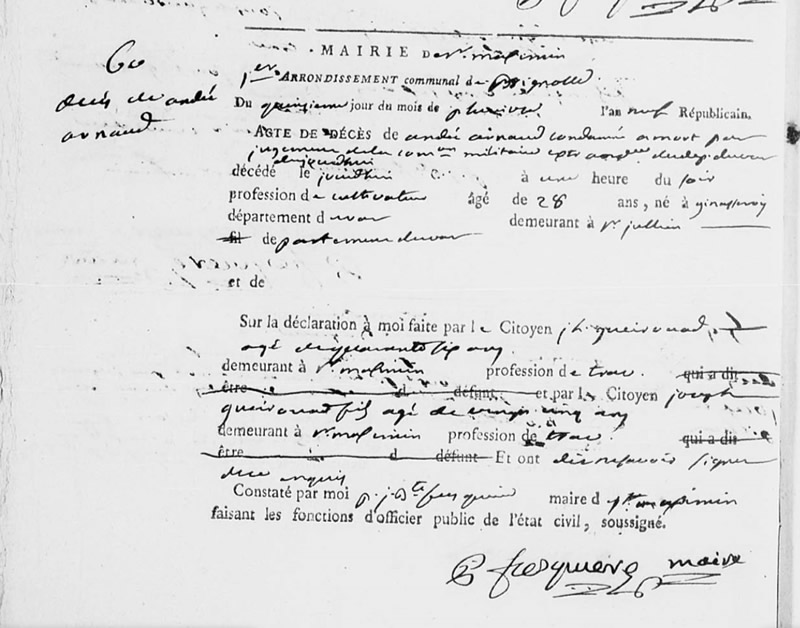 60
decés de andré
arnaud
MAIRIE De St. maximin
1er ARRONDISSEMENT communal de Brignolle.
Du quinzieme jour du mois de pluviose l'an neuf Républicain.
ACTE DE DÉCÈS de andré arnaud condamné a mort par
jugement de la com.on militaire extraord.re du dep. du var
aujourdhui
décédé le jourdhui à une heure du soir
profession de cultivateur âgé de 28 ans, né à ginasservy
département du var demeurant à St jullien
fil de partement du var
et de
Sur la déclaration à moi faite par le Citoyen j.h queirouard,
agé de quarante six ans
demeurant à St maximin profession de trav. qui a dit
être d défunt et par le Citoyen joseph
queirouard fils agé de vingt cinq ans
demeurant à St maximin profession de trav. qui a dit
être d défunt Et ont dit ne savoir signer
de ce enquis
Constaté par moi p. j. Bte fresquiere maire d St maximin
faisant les fonctions d'officier public de l'état civil, soussigné.
fresquiere maire